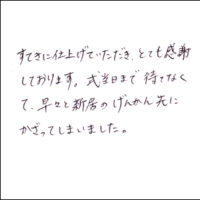 すてきに仕上げていただき、とても感謝
しております。式当日まで待てなく
て、早々と新居のげんかん先に
かざってしまいました。